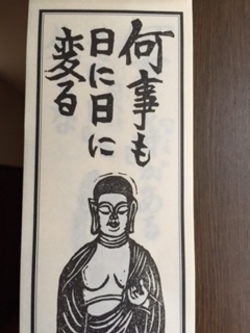 何事も
日に日に
変る